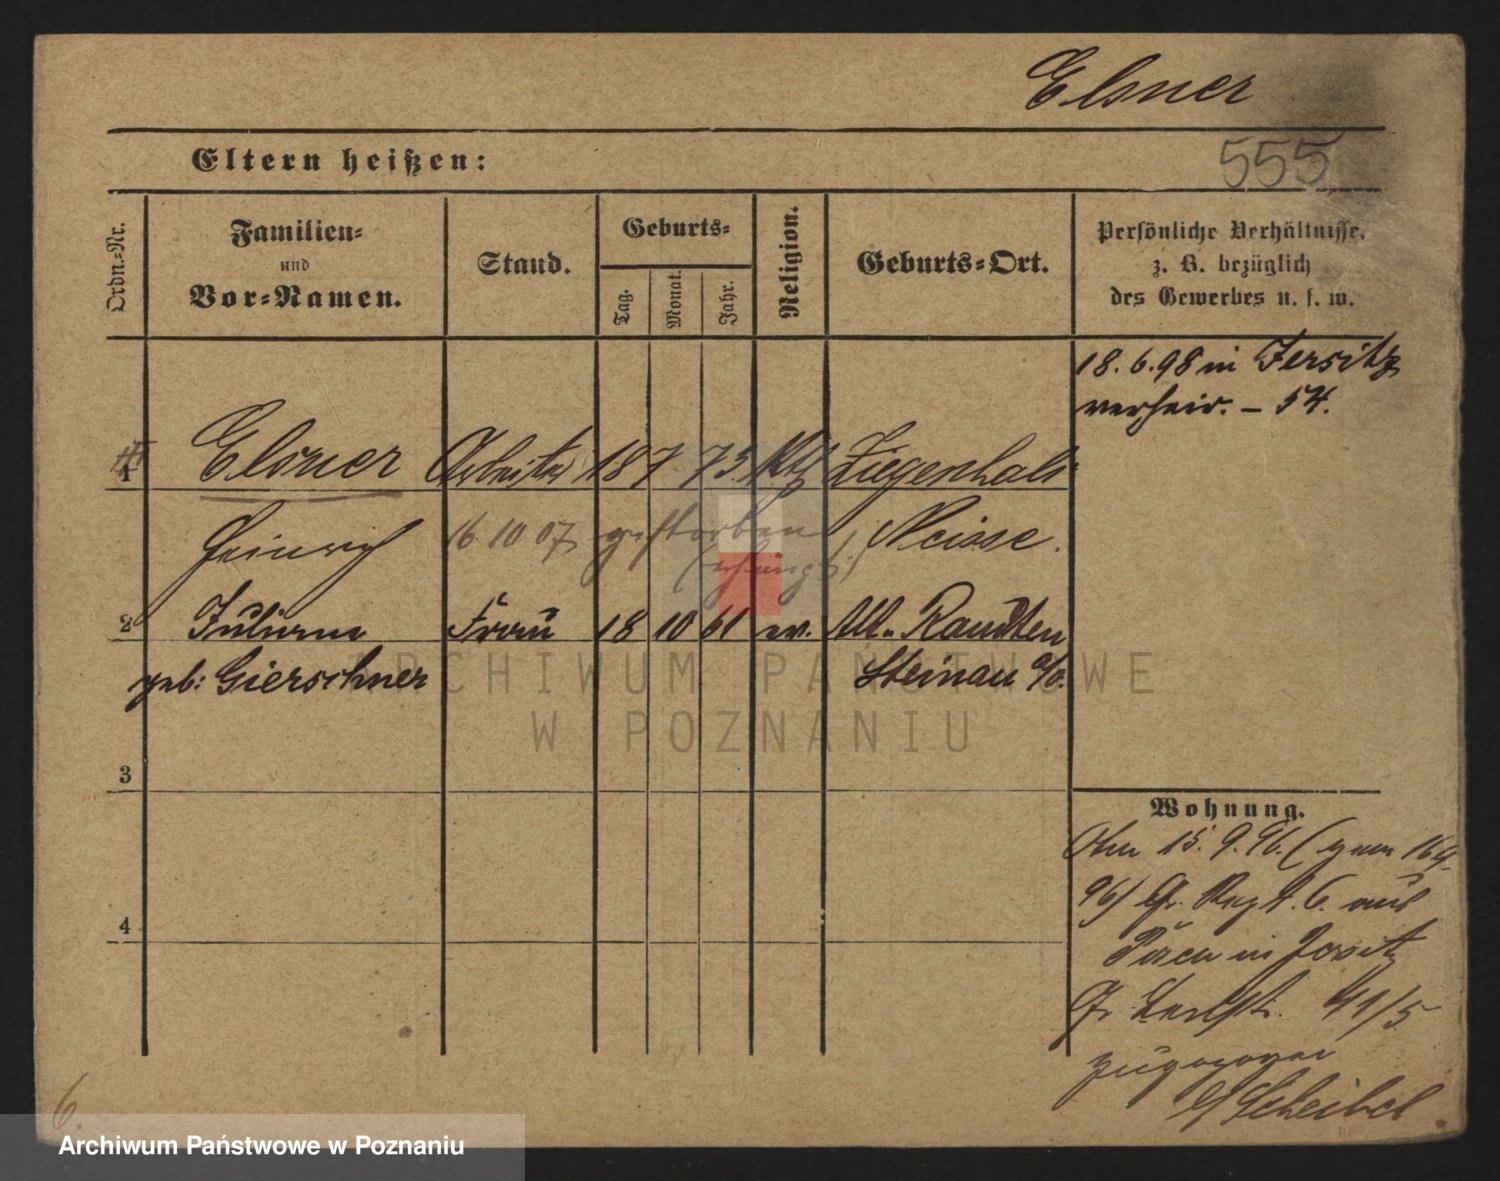 Elsner
555
Eltern heißen:
Ordn.-Nr.
Familien-
und
Vor-Namen.
Stand.
Geburts-
Tag.
Monat.
Jahr.
Religion.
Geburts-Ort.
Persönliche Verhältnisse,
z. B. bezüglich
des Gewerbes u. s. w.
18. 6. 98 in Jersitz
verheir. – 54.
1 Elsner Arbeiter 18 7 73. Kth Ziegenhals
Heinrich 16 10 07 gestorben Neisse.
2 Juliane Frau 18 10 61 ev. Alt-Raudten
geb: Gierschner Steinau a/o.
3
4
Wohnung.
15. 9. 96. (
96) Gr. Regt. 6. aus
Posen in
41/5
zugezogen
Scheibel
6.
ARCHIWUM PAŃSTWOWE
W POZNANIU
Archiwum Państwowe w Poznaniu